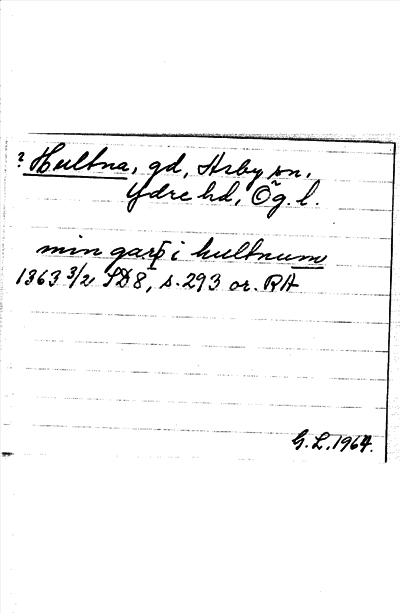 ? Hultna, gd, Asby sn,
Ydre hd, Ög. l.
min garþ i hultnum
1363 3/2 SD8, s. 293 or. RA
G. L. 1964.